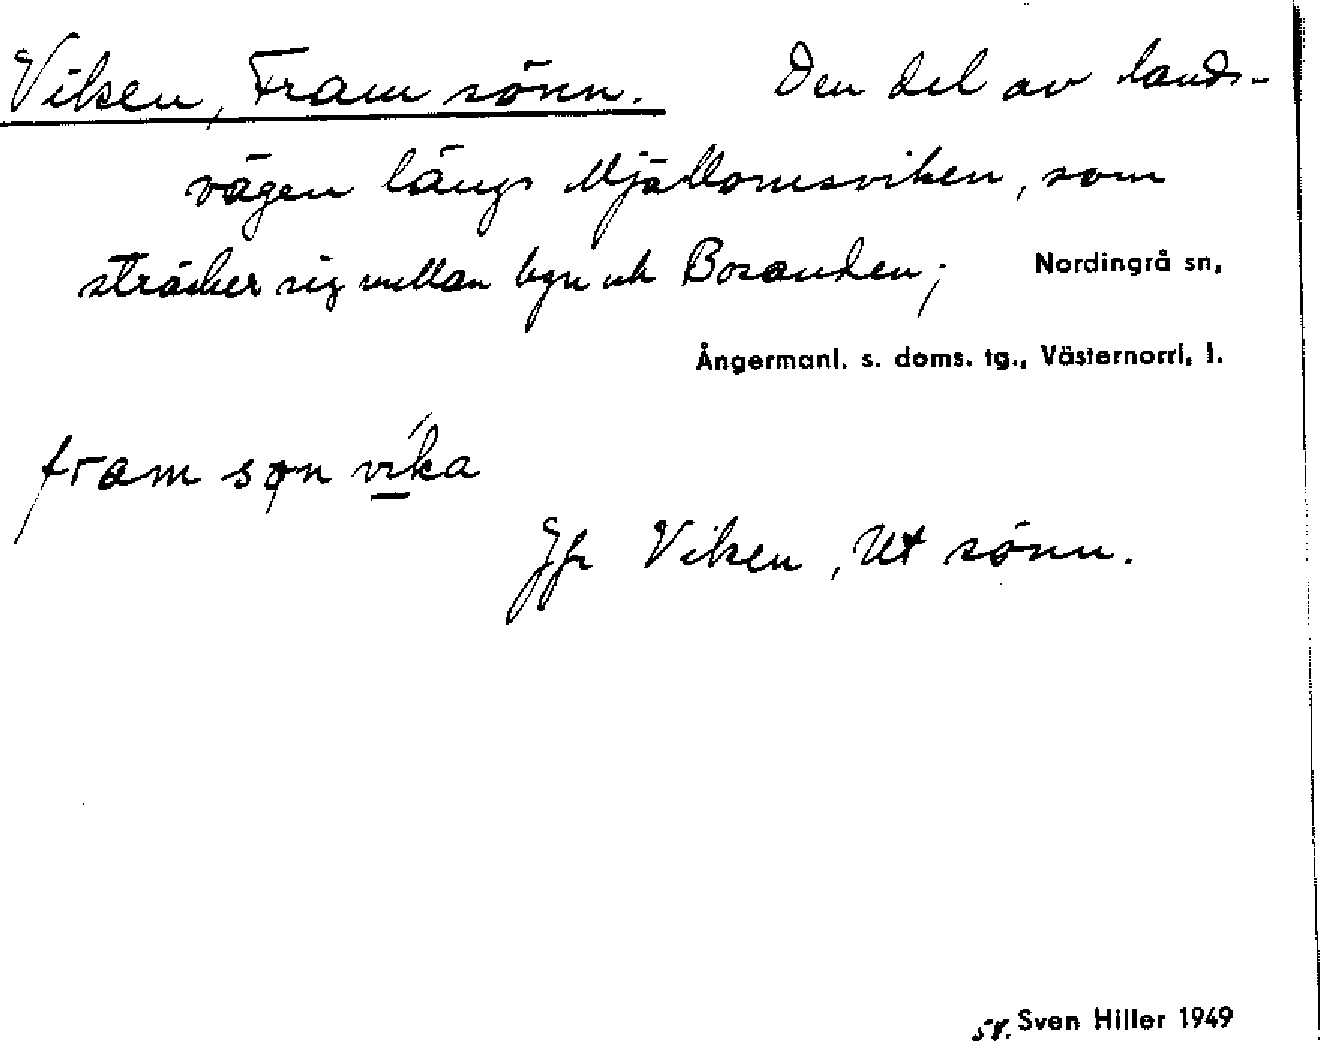 Viken, Fram sönn. Den del av lands-
vägen längs Mjällomsviken, som
sträcker sig mellan byn och Bosanden; Nordingrå sn,
Ångermanl. s. doms. tg., Västernorrl. l.
fram søn vika
Jfr Viken, Ut sönn.
58. Sven Hiller 1949